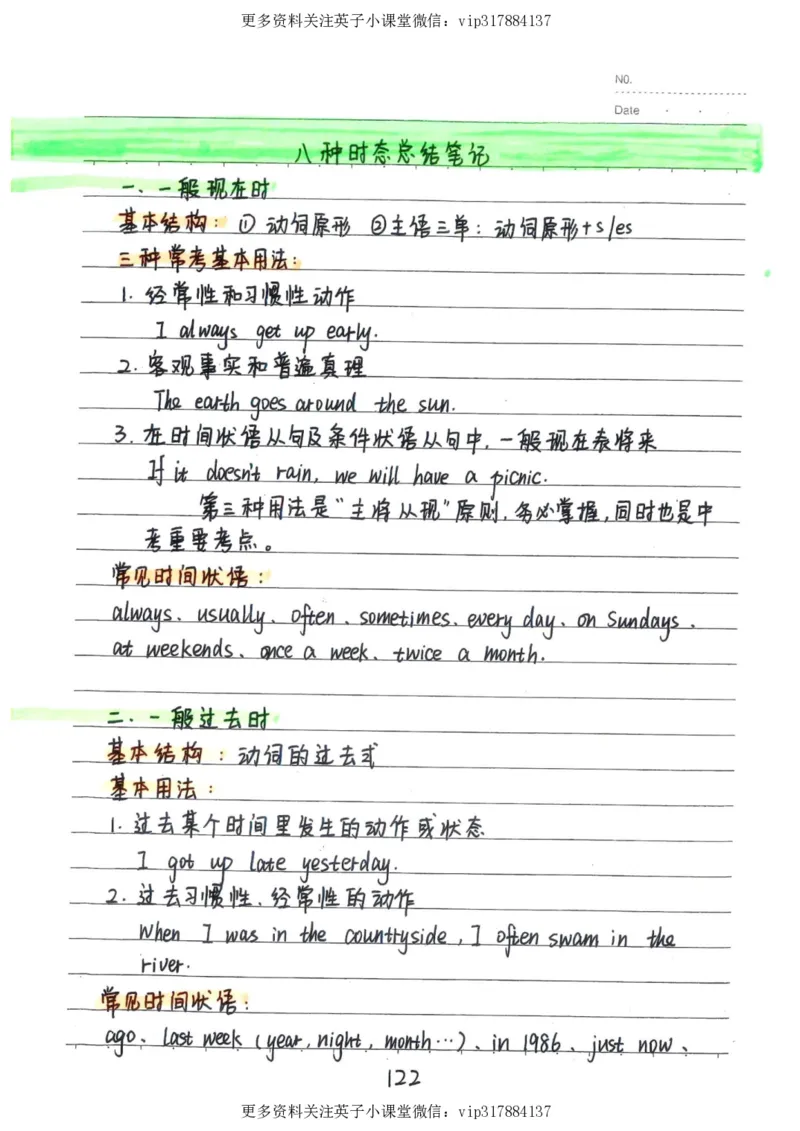 更多资料关注英子小课堂微信：vip317884137
NO.
Date
八种时态总结笔记
一、一般现在时
基本结构：① 动词原形 ②主语三单：动词原形+s/es
三种常考基本用法：
1. 经常性和习惯性动作
I always get up early.
2. 客观事实和普遍真理
The earth goes around the sun.
3. 在时间状语从句及条件状语从句中，一般现在表将来
If it doesn't rain, we will have a picnic.
第三种用法是“主将从现”原则，务必掌握，同时也是中
考重要考点。
常见时间状语：
always、usually、often、sometimes、every day、on Sundays、
at weekends、once a week、twice a month.
二、一般过去时
基本结构：动词的过去式
基本用法：
1. 过去某个时间里发生的动作或状态
I got up late yesterday.
2. 过去习惯性、经常性的动作
When I was in the countryside, I often swam in the
river.
常见时间状语：
ago、last week (year, night, month…)、in 1986、just now、
122
更多资料关注英子小课堂微信：vip317884137